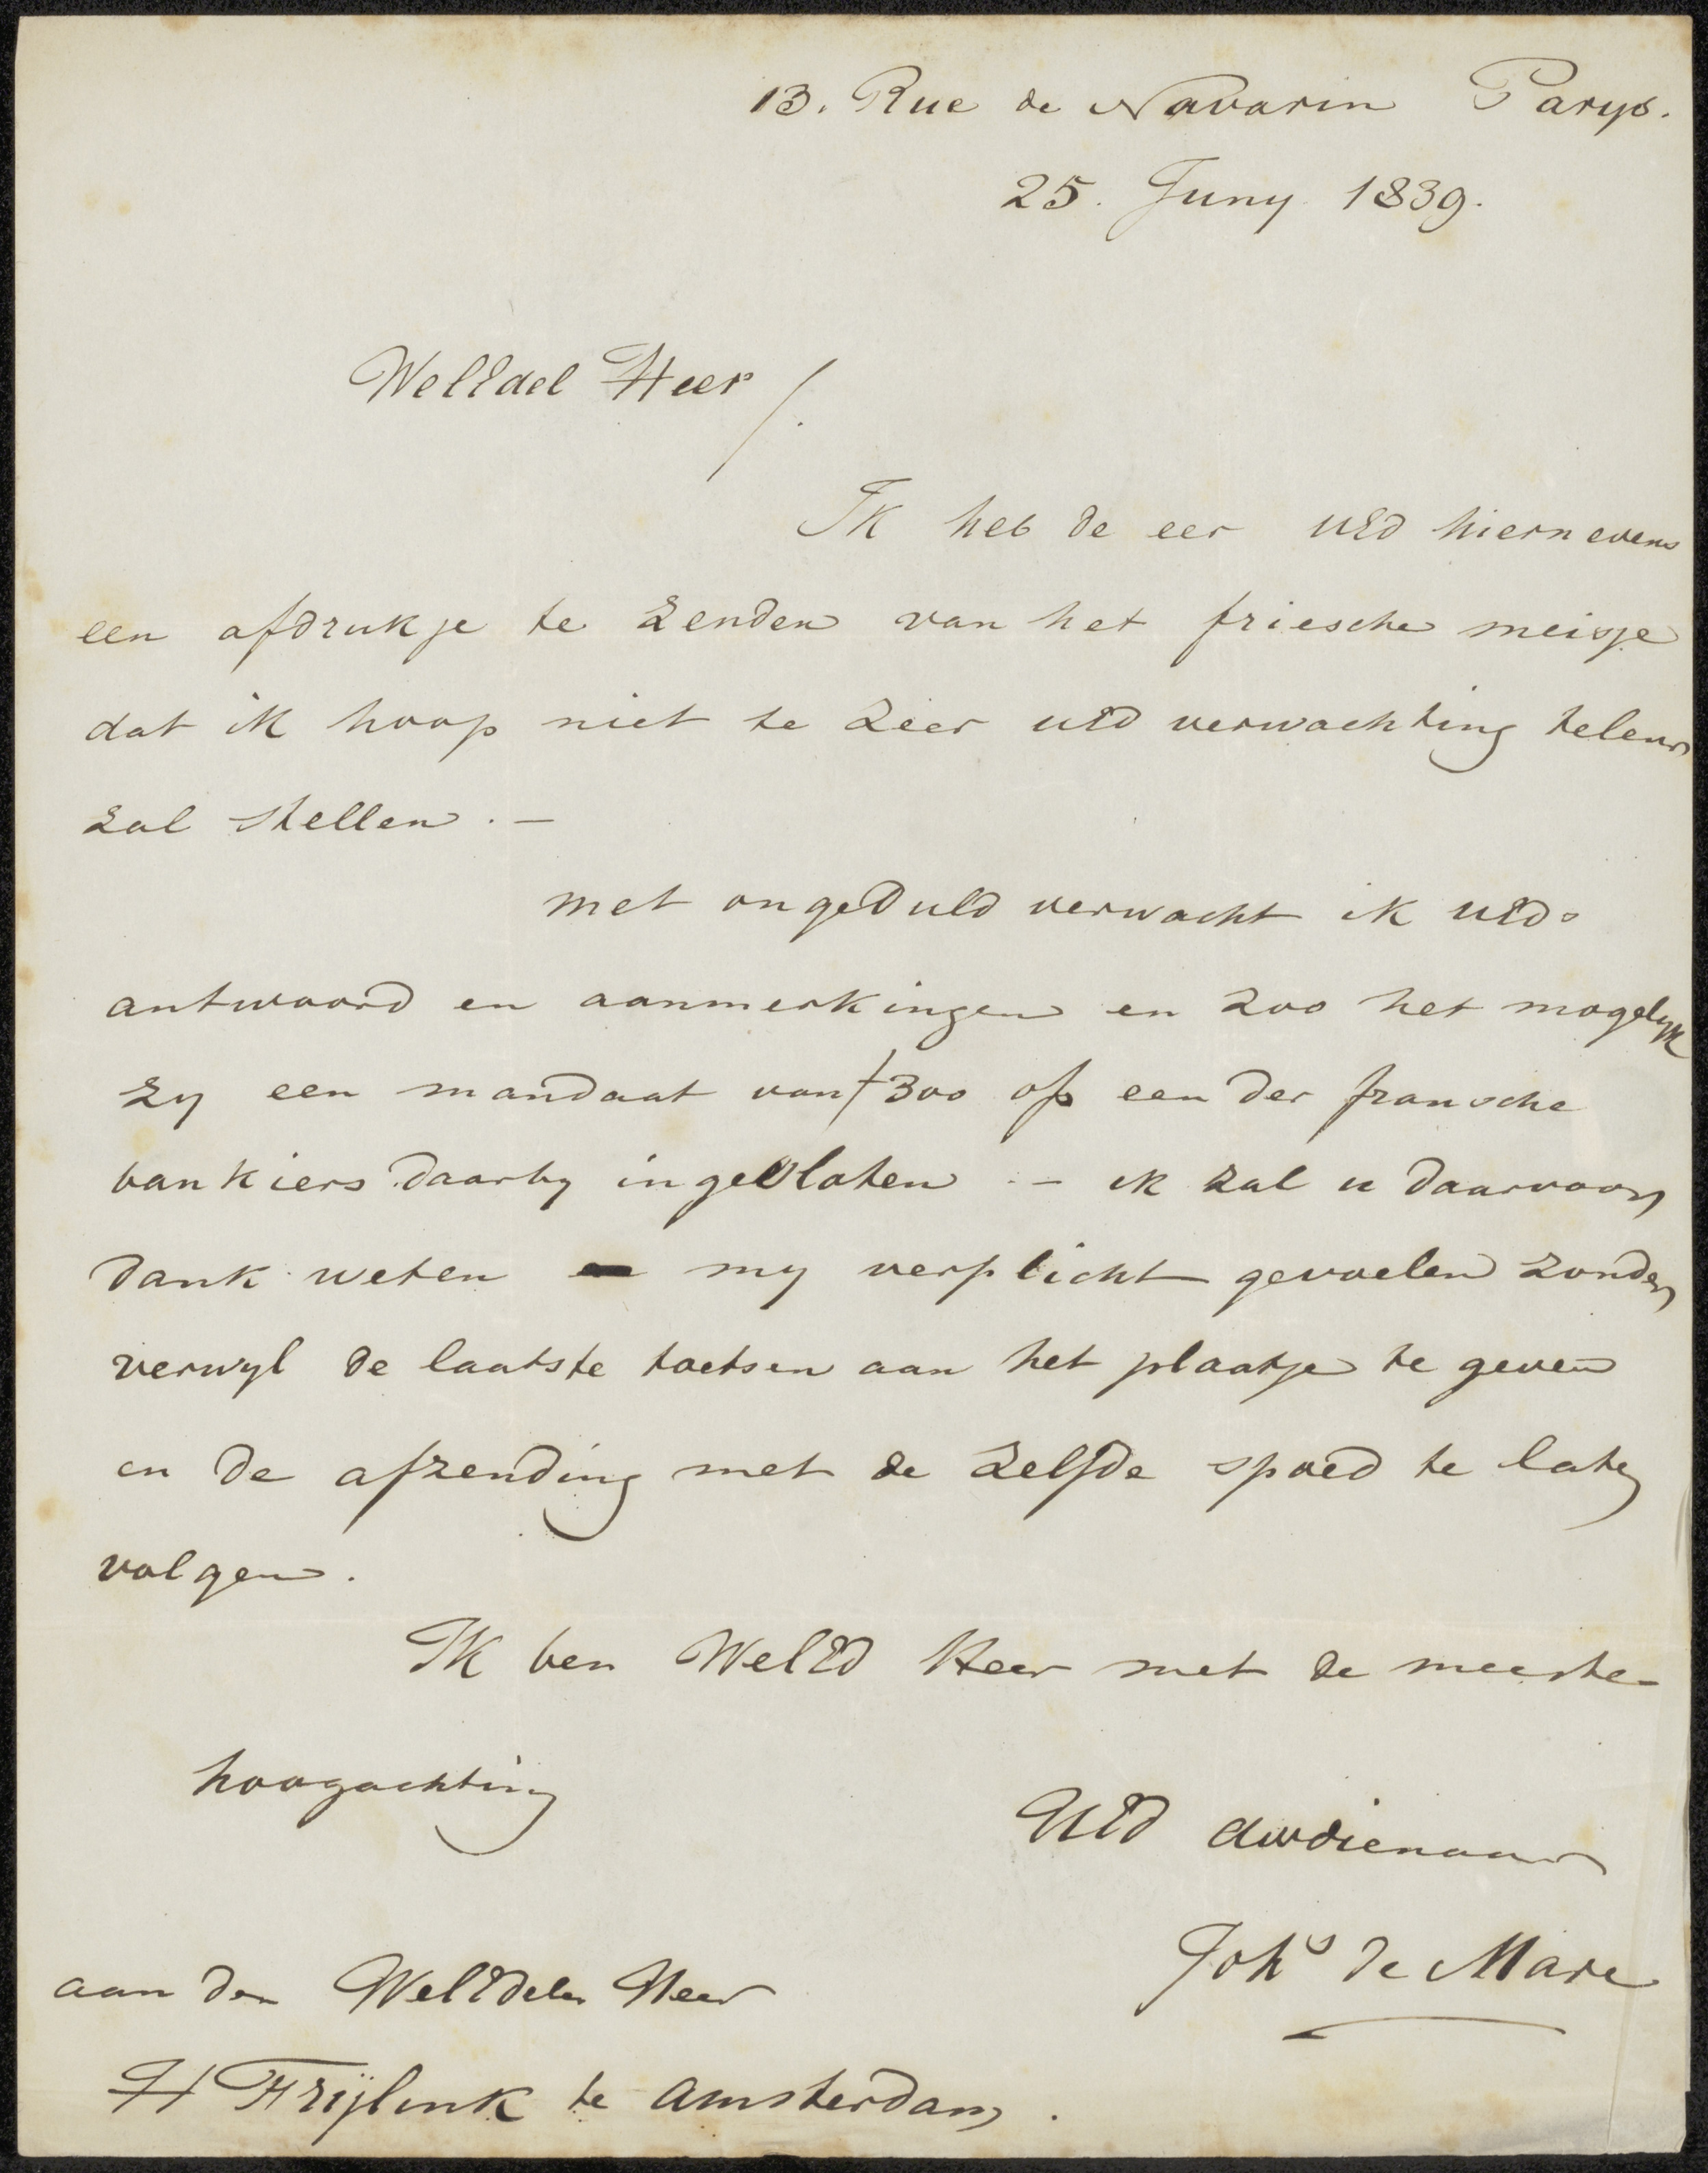 13. Rue de Navarin Parys.
25. Juny 1839.
WelEdel Heer /.
Ik heb de eer UEd hiernevens
een afdrukje te zenden van het friesche meisje
dat ik hoop niet te zeer UEd verwachting teleur
zal stellen. –
met ongeduld verwacht ik UEds
antwoord en aanmerkingen en zoo het mogelyk
zy een mandaat van ƒ300 op een der fransche
bankiers daarby ingesloten. – ik zal u daarvoor
dank weten my verplicht gevoelen zonder
verwyl de laatste toetsen aan het plaatje te geven
en de afzending met de zelfde spoed te laten
volgen.
Ik ben WelEd Heer met de meeste
hoogachting
UEd dwdienaar
Johs de Mare
aan den WelEdelen Heer
H Frijlink te Amsterdam.